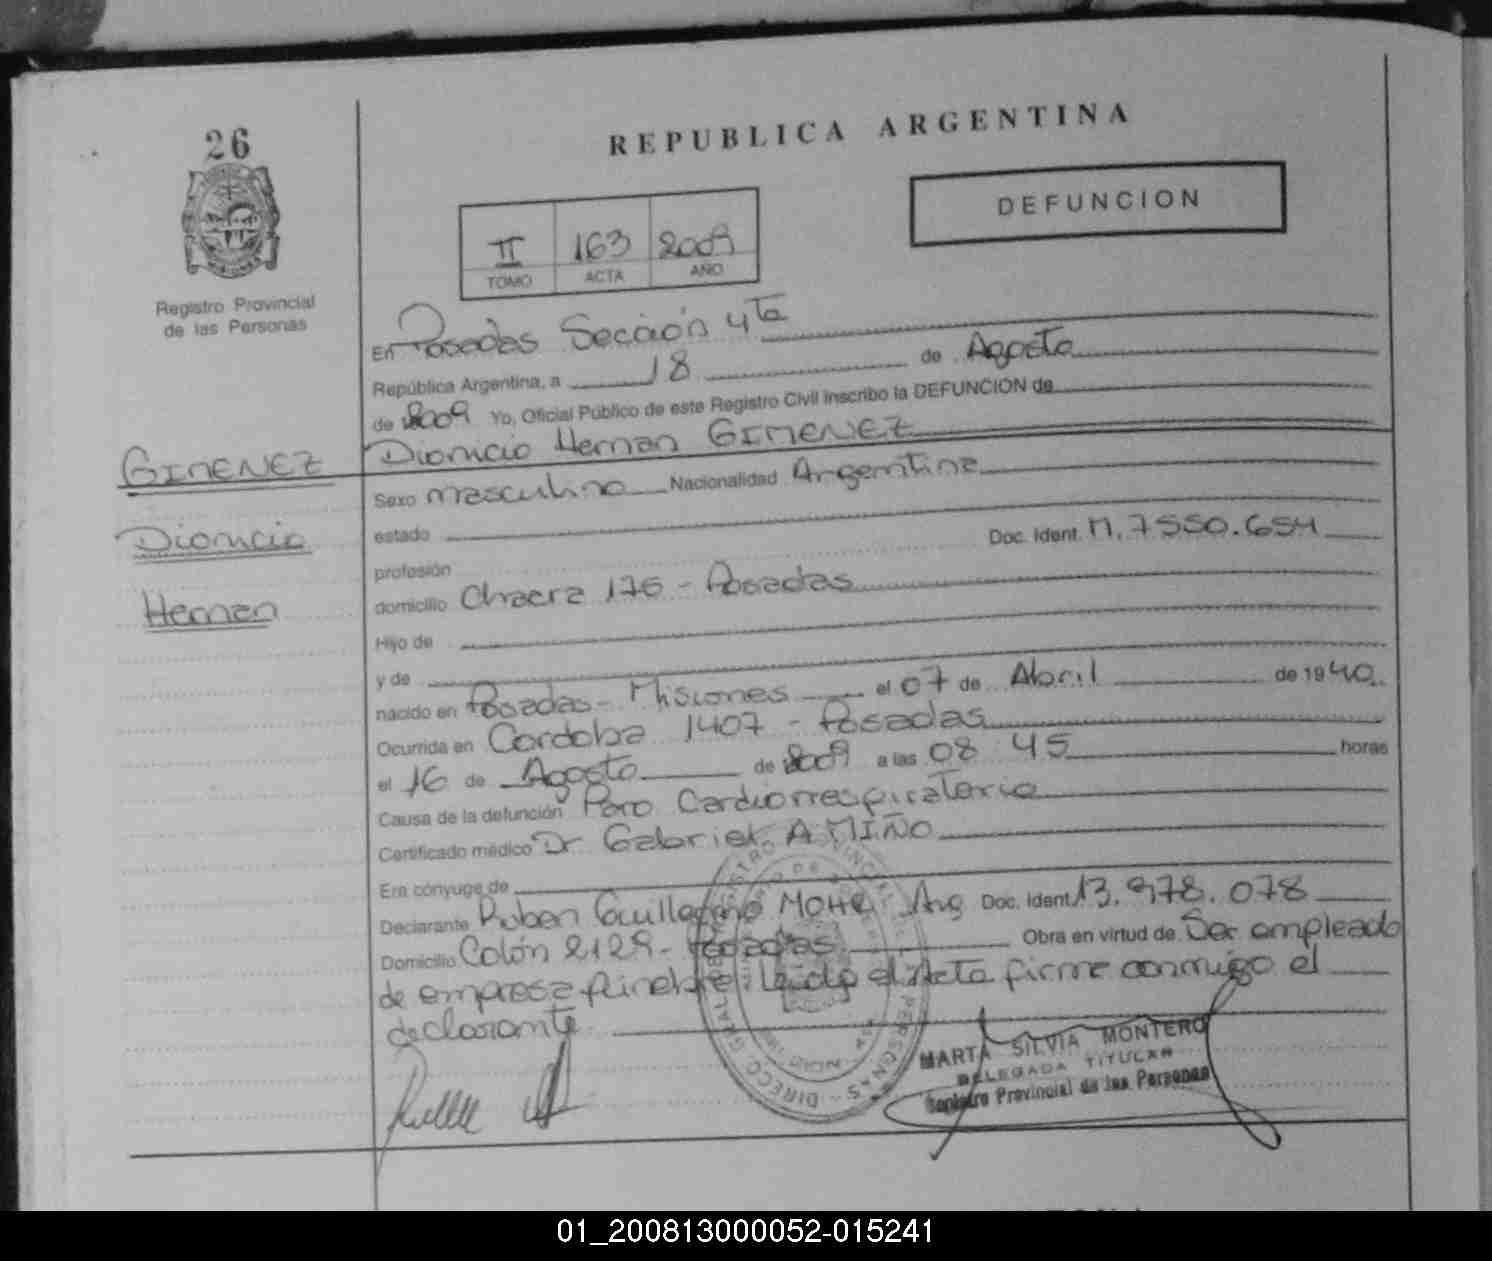 26
Registro Provincial
de las Personas
REPUBLICA ARGENTINA
DEFUNCION
II 163 2009
TOMO ACTA AÑO
En Posadas Sección 4ta
República Argentina, a 18 de Agosto
de 2009 Yo, Oficial Público de este Registro Civil inscribo la DEFUNCION de
GIMENEZ
Dionicio
Hernan
Dionicio Hernan GIMENEZ
Sexo masculino Nacionalidad Argentina
estado
Doc. Ident. M. 7550.654
profesión
domicilio Chacra 176 - Posadas
Hijo de
y de
nacido en Posadas - Misiones el 07 de Abril de 1940
Ocurrida en Cordoba 1407 - Posadas
el 16 de Agosto de 2009 a las 08 45 horas
Causa de la defunción Paro Cardiorrespiratorio
Certificado médico Dr Gabriel A MIÑO
Era cónyuge de
Declarante Ruben Guillermo Arg Doc. Ident. 13.978.078
Domicilio Colón 2129 - Posadas Obra en virtud de Ser empleado
de empresa fúnebre: Leída el Acta firma conmigo el
declarante
MARTA SILVIA MONTERO
DELEGADA TITULAR
Registro Provincial de las Personas
01_200813000052-015241